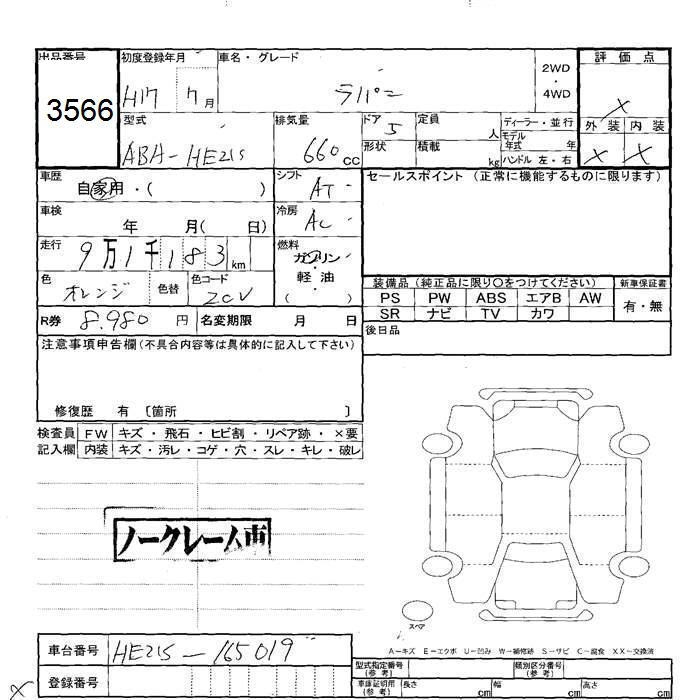 出品番号 初度登録年月 車名・グレード 2WD 評価点
3566 H17 7月 ラパン ・ ×
4WD 外装 内装
型式 排気量 ドア 5 定員 人 ディーラー・並行 × ×
ABA-HE21S 660cc 形状 積載 kg モデル年式 年
ハンドル 左・右
車歴 シフト セールスポイント (正常に機能するものに限ります)
自家用・( ) AT
車検 冷房
年 月( 日) AC
走行 燃料
9万1千183km ガソリン
軽・油
( )
色 色替 色コード 装備品 (純正品に限り○をつけてください) 新車保証書
オレンジ ZCV PS PW ABS エアB AW 有・無
SR ナビ TV カワ
R券 8,980円 名変期限 月 日 後日品
注意事項申告欄 (不具合内容等は具体的に記入して下さい)
修復歴 有 〔箇所 〕
検査員 FW キズ・飛石・ヒビ割・リペア跡・×要
記入欄 内装 キズ・汚レ・コゲ・穴・スレ・キレ・破レ
ノークレーム車
スペア
A-キズ E-エクボ U-凹み W-補修跡 S-サビ C-腐食 XX-交換済
車台番号 HE21S-165019
登録番号
型式指定番号 (参考) 類別区分番号 (参考)
車庫証明用 (参考) 長さ cm 幅 cm 高さ cm
×